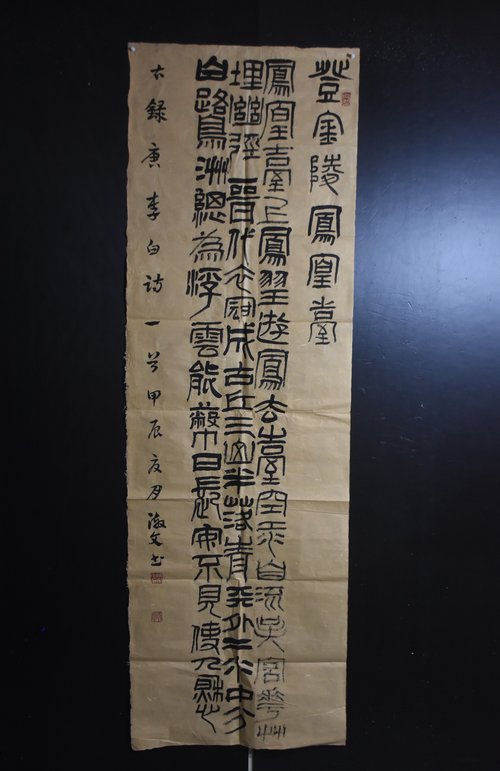 登金陵鳳凰臺
鳳皇臺上鳳皇遊鳳去臺空江自流吳宮華艸
埋幽徑晉代衣冠成古丘三山半落青天外二水中分
白鷺洲總為浮雲能蔽日長安不見使人愁
右錄唐李白詩一首甲辰夏月文书